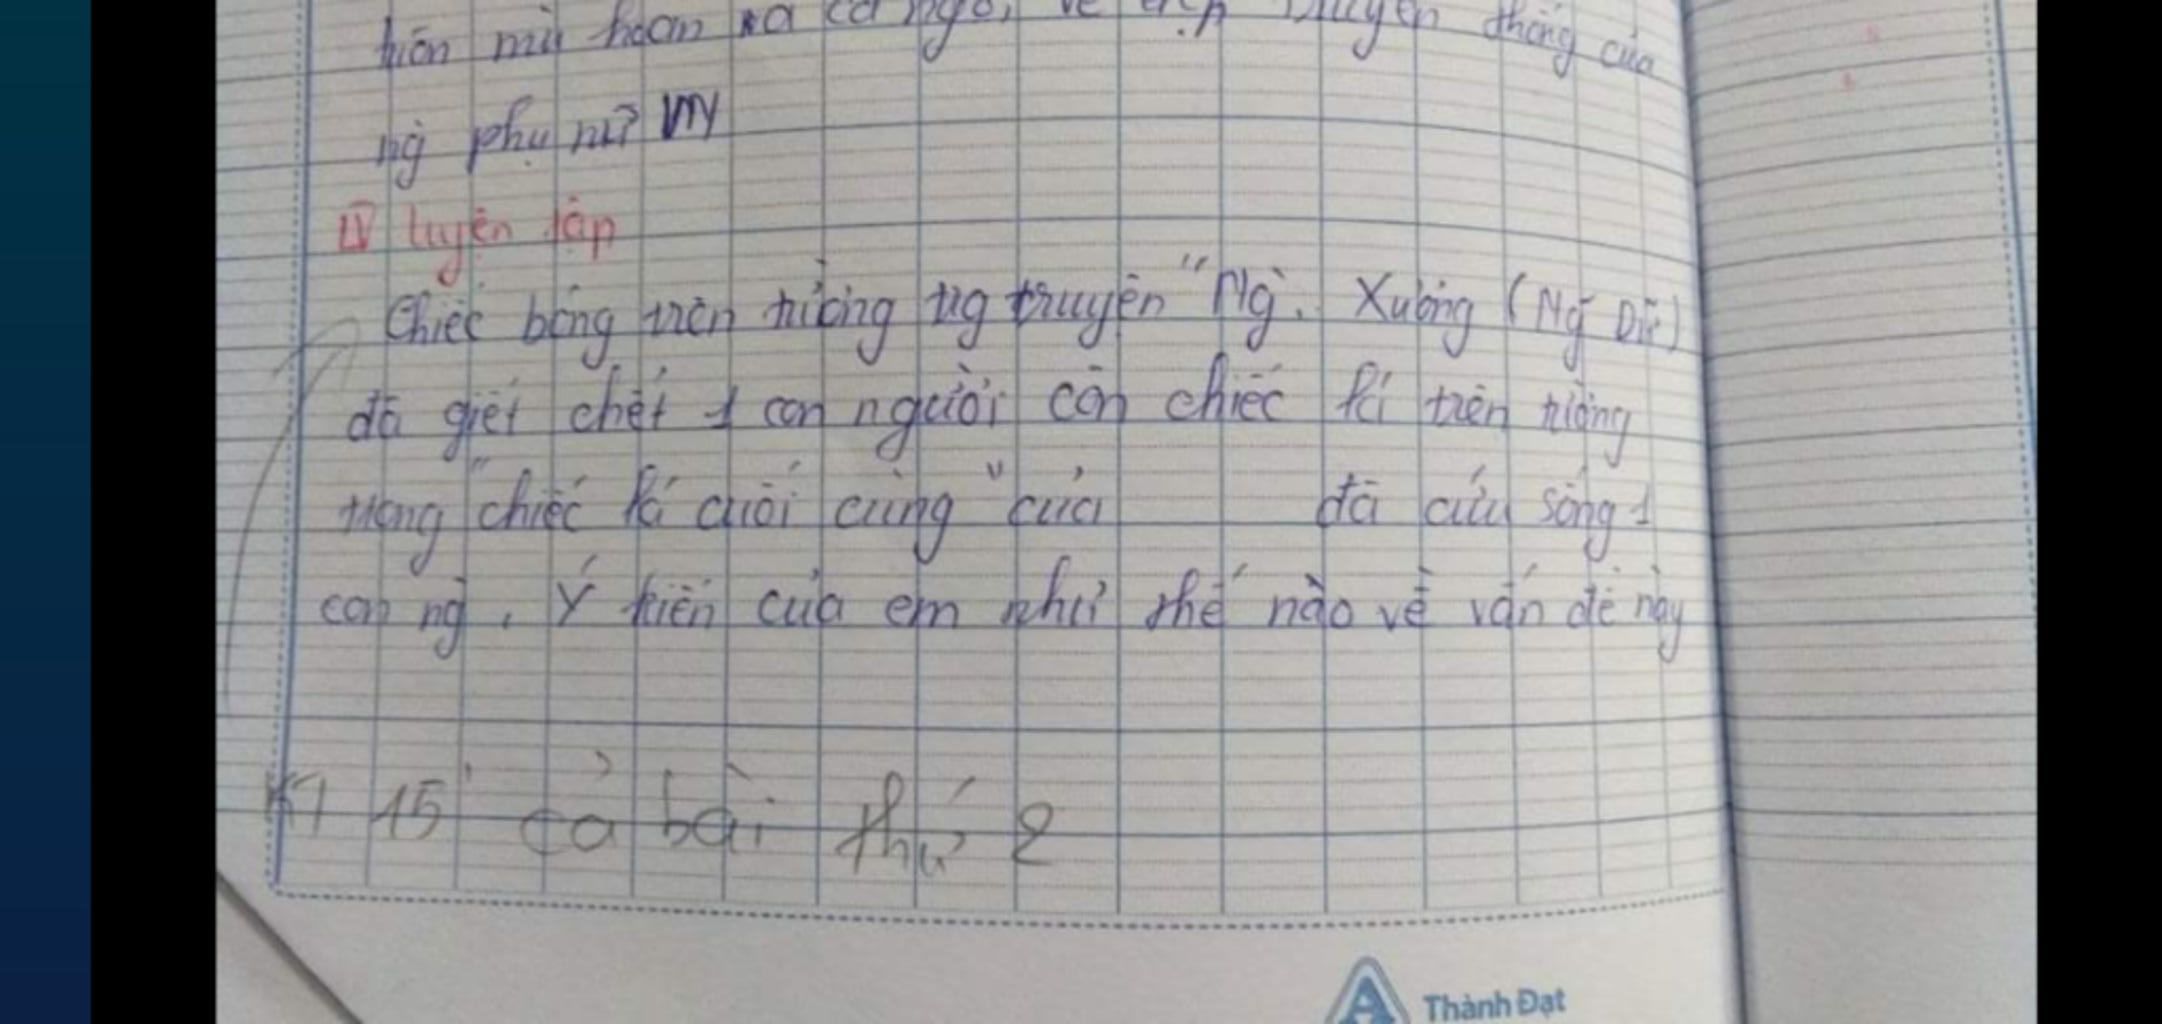 hiên mù hoan ra cả ngõ, vẻ đẹp truyền thống của
ng phụ nữ VN
IV luyện tập
Chiếc bóng trên tường tng truyện "Ng. Xương (Ng Dữ)
đã giết chết 1 con người còn chiếc lá trên tường
trong "chiếc lá cuối cùng" của đã cứu sống 1
con ng. Ý kiến của em như thế nào về vấn đề này
KT 15' cả bài thứ 2
Thành Đạt